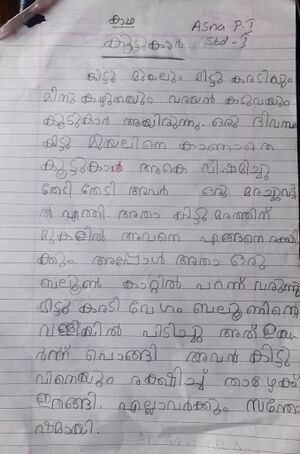 കഥ
Asna P.T
Std - I
കൂട്ടുകാർ
കിട്ടു മുയലും മിട്ടു കരടിയും
മീനു കഴുതയും വരയൻ കടുവയും
കൂട്ടുകാർ ആയിരുന്നു. ഒരു ദിവസം
കിട്ടു മുയലിനെ കാണാതെ
കൂട്ടുകാർ ആകെ വിഷമിച്ചു
തേടി തേടി അവർ ഒരു മരച്ചുവട്ടി
ൽ എത്തി. അതാ കിട്ടു മരത്തിന്
മുകളിൽ അവനെ എങ്ങനെ രക്ഷി
ക്കും. അപ്പോൾ അതാ ഒരു
ബലൂൺ കാറ്റിൽ പറന്ന് വരുന്നു
മിട്ടു കരടി വേഗം ബലൂണിന്റെ
വള്ളിയിൽ പിടിച്ചു അത് ഉയ
ർന്ന് പൊങ്ങി അവൻ കിട്ടു
വിനെയും രക്ഷിച്ച് താഴേക്ക്
ഇറങ്ങി. എല്ലാവർക്കും സന്തോ
ഷമായി.